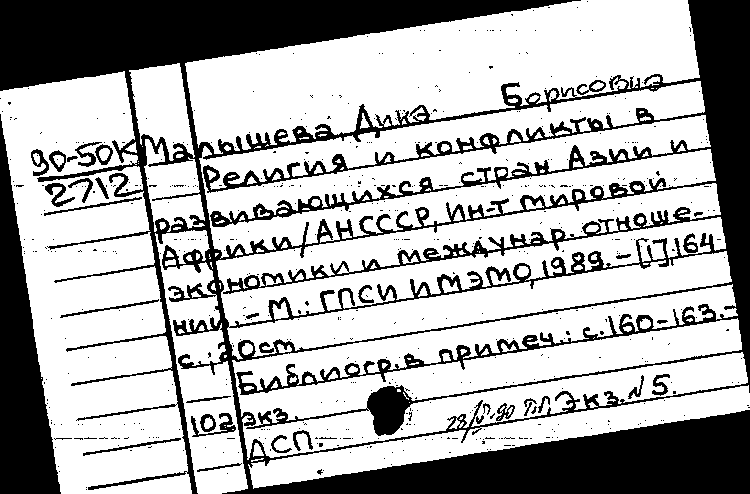 Малышева, Дина Борисовна
90-50К
2712
Религия и конфликты в
развивающихся стран Азии и
Африки / АН СССР, Ин-т мировой
экономики и междунар. отноше-
ний. - М.: ГПСИ ИМЭМО, 1989. - [1], 164
с.; 20 ст.
Библиогр. в примеч.: с. 160-163. -
102 экз.
ДСП.
Экз. N 5.